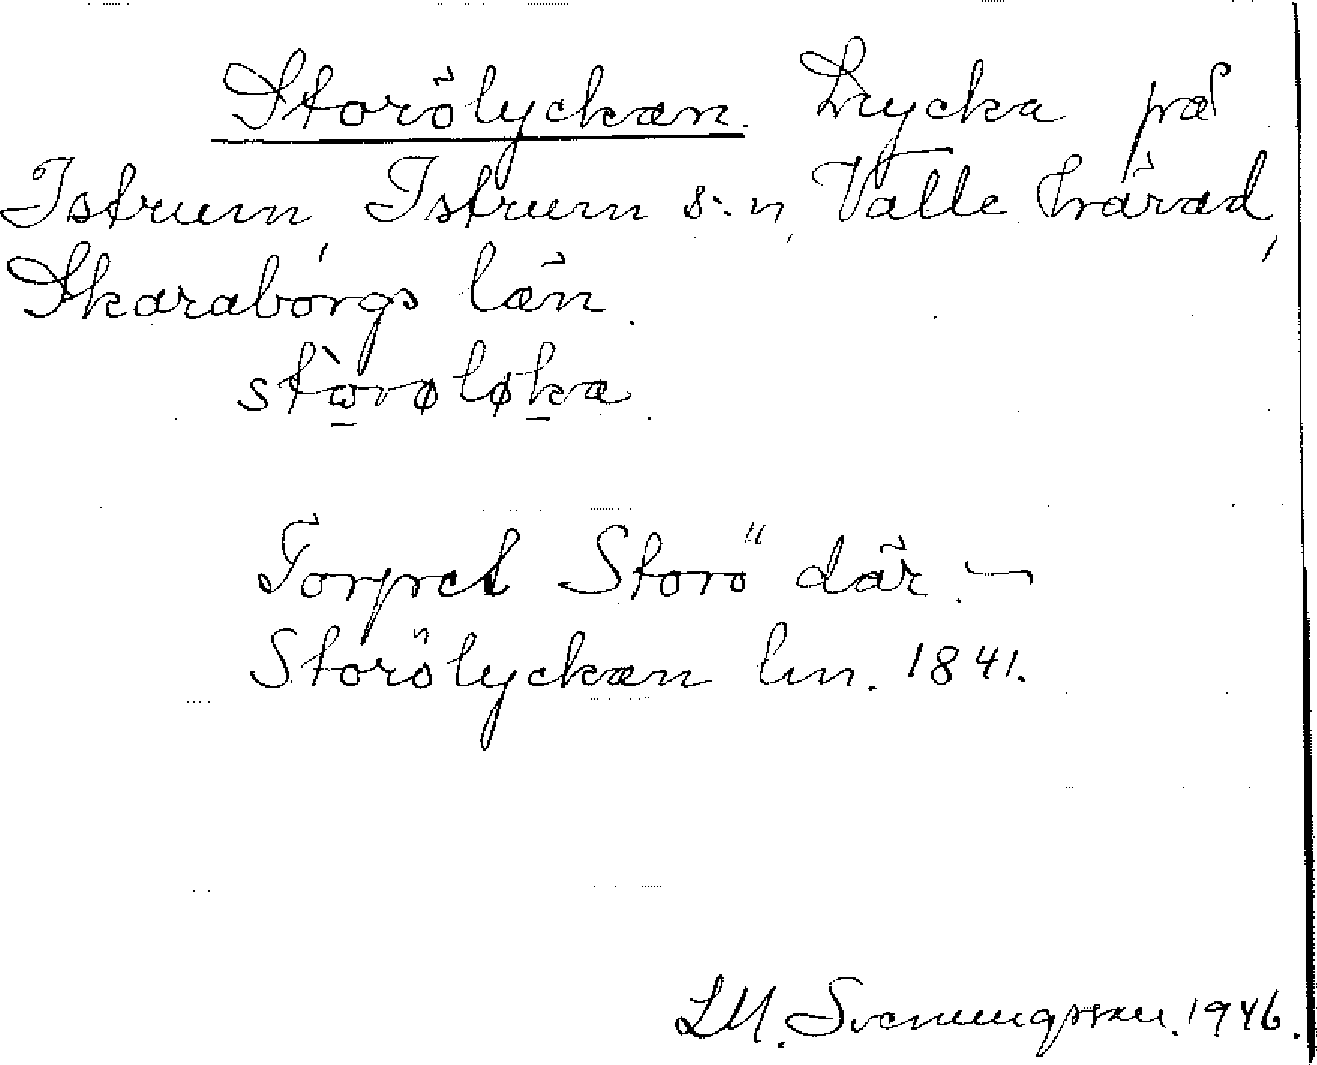 Storölyckan. Lycka på
Istrum, Istrum s:n, Valle härad,
Skaraborgs län.
stòrøløka
Torpet Storö där. —
Storölyckan lm. 1841.
LM. Svenungsson. 1946.